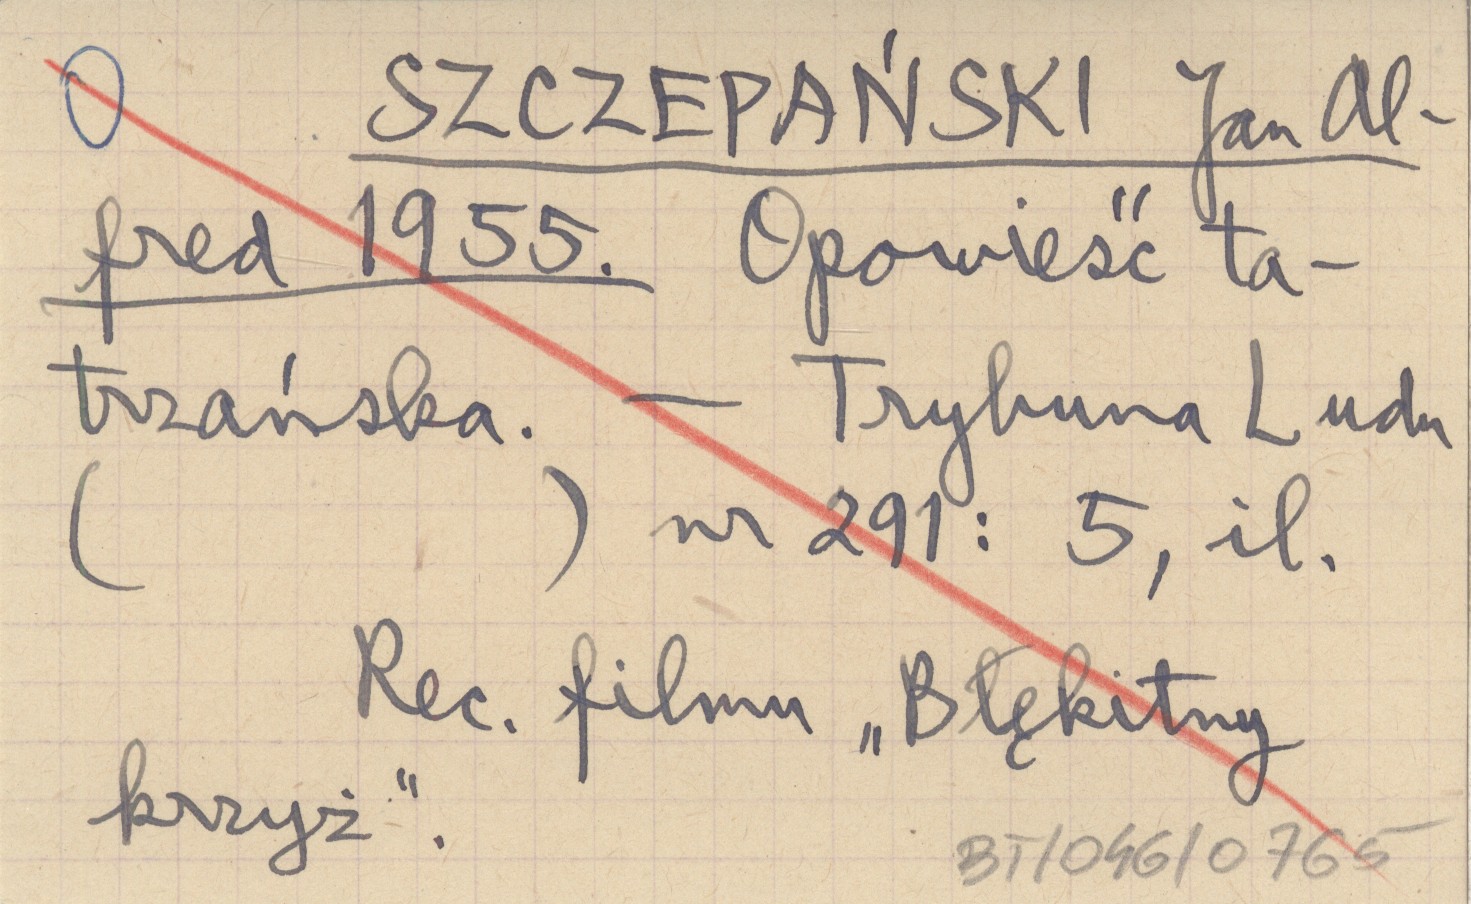 SZCZEPAŃSKI Jan Al-
fred 1955. Opowieść ta-
trzańska. — Trybuna Ludu
( ) nr 291: 5, il.
Rec. filmu „Błękitny
krzyż".
BT/046/0765